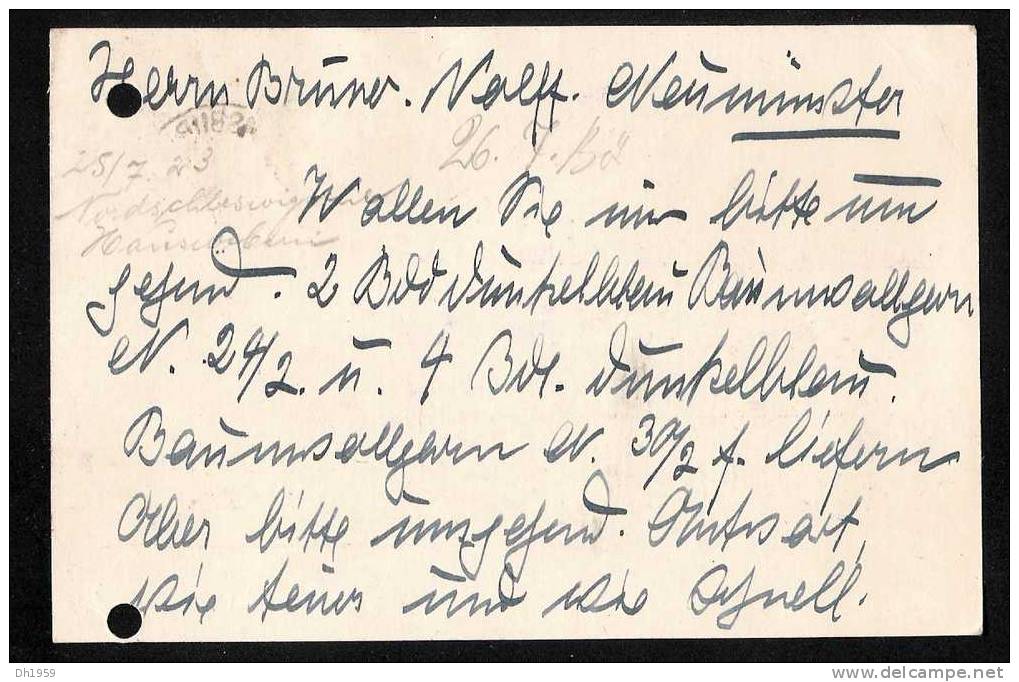 Herrn Bruno. Nolff. Neumünster
91182
25/7. 23
26. 7. Bö
Nordschleswig
Wollen Sie mir bitte um
gehend. 2 Bdl dunkelblau Baumwollgarn
N. 24/2. u. 4 Bdl. dunkelblau.
Baumwollgarn N. 30/2 f. liefern
Aber bitte umgehend. Antwort,
wie teuer und wie schnell.
Dh1959
www.delcampe.net